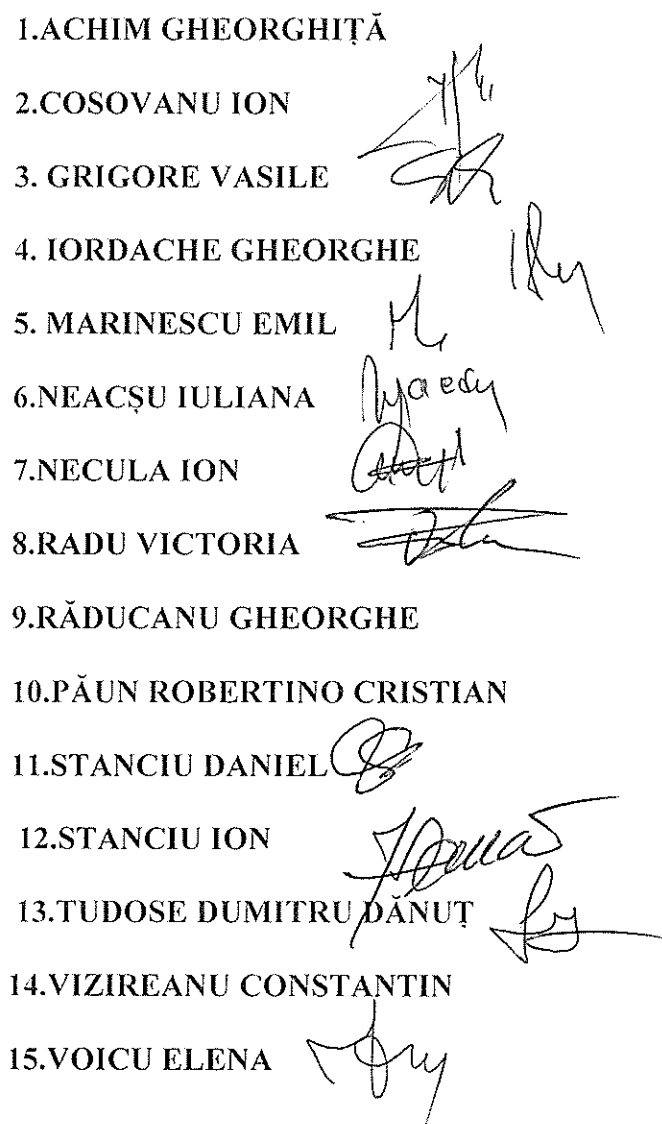 1.ACHIM GHEORGHIȚĂ
2.COSOVANU ION
3. GRIGORE VASILE
4. IORDACHE GHEORGHE
5. MARINESCU EMIL
6.NEACȘU IULIANA
7.NECULA ION
8.RADU VICTORIA
9.RĂDUCANU GHEORGHE
10.PĂUN ROBERTINO CRISTIAN
11.STANCIU DANIEL
12.STANCIU ION
13.TUDOSE DUMITRU DĂNUȚ
14.VIZIREANU CONSTANTIN
15.VOICU ELENA